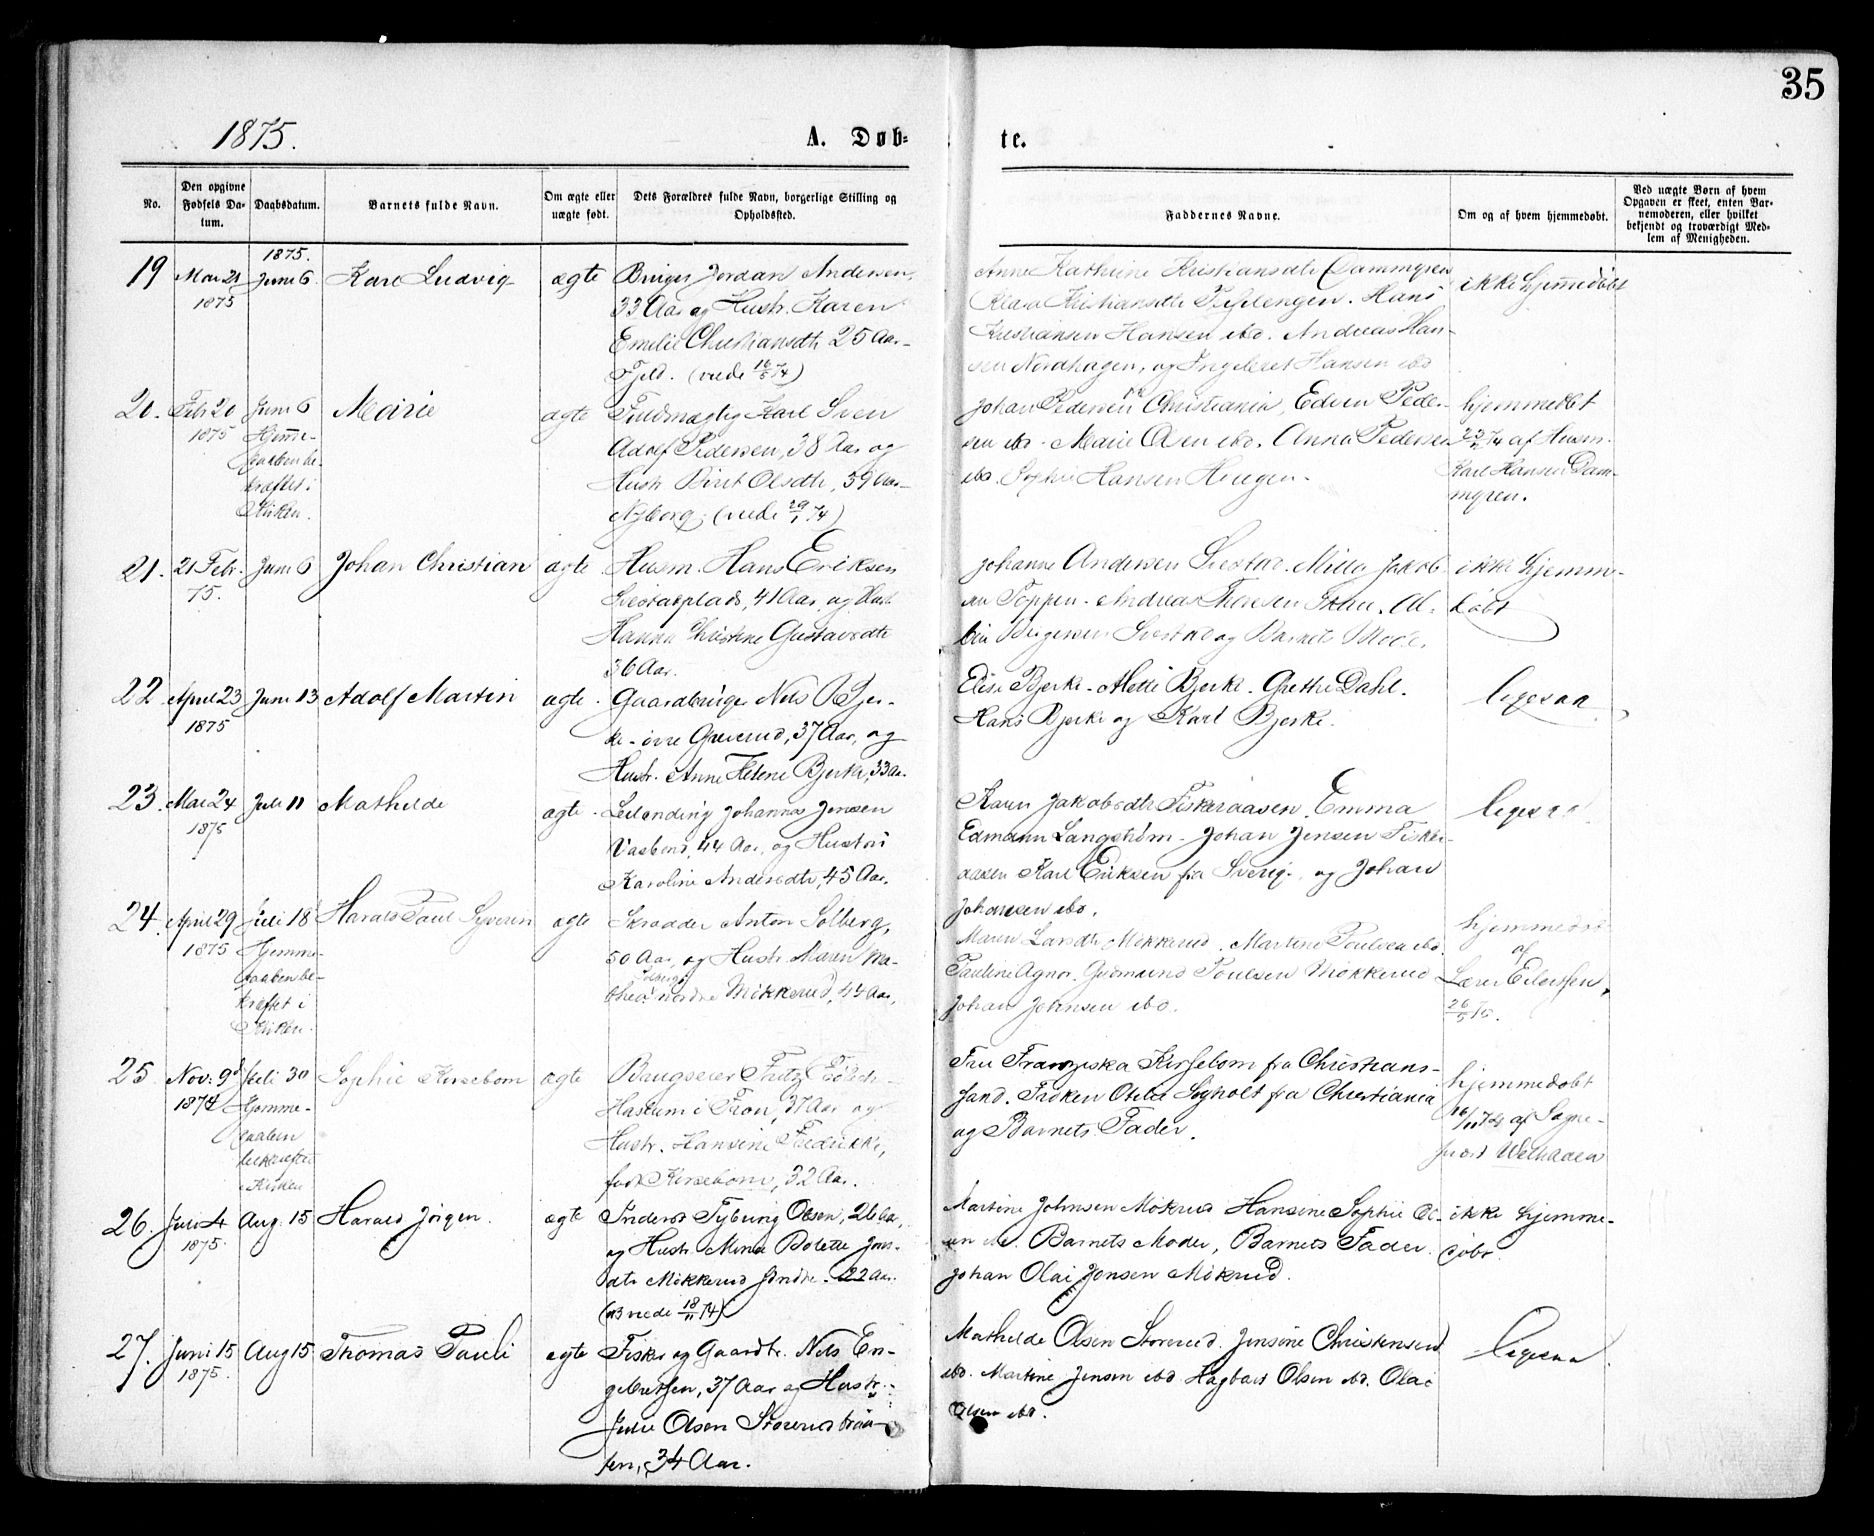 35
1875.
A. Døb-
te.
No.
Den opgivne Fødsels Da-tum.
Daabsdatum.
Barnets fulde Navn.
Om ægte eller uægte født.
Dets Forældres fulde Navn, borgerlige Stilling og Opholdssted.
Faddernes Navne.
Om og af hvem hjemmedøbt.
Ved uægte Børn af hvem Opgaven er skeet, enten Bar-nemoderen, eller hvilket bekjendt og troværdigt Med-lem af Menigheden.
1875.
19
Mai 21
1875
Juni 6
Karl Ludvig
ægte
Bruger Jordan Andersen,
33 Aar og Hustr. Karen
Emilie Christiansdtr 25 Aar
Fjeld. (viede 16/5 74)
Anne Kathrine Kristiansdtr Dammgren
Klara Kristiansdtr Hans
Kristiansen Hansen ibd. Andreas Han-
sen Nordhagen, og Ingeboret Hansen ibd
ikke hjemmedøbt
20.
Febr 20
1875
Juni 6
Hjemme-
daaben be-
kræftet i
Kirken.
Marie
ægte
Fuldmægtig Karl Sven
Adolf Pedersen, 38 Aar og
Hustr Birit Olsdtr, 39 Aar
Nyborg; (viede 29/1 74)
Johan Pedersen Christiania, Edvin Peder-
sen ibd. Marie Olsen ibd. Anna Pedersen
ibd. Sophie Hansen Haugen.
hjemmedøbt
af Husm.
Karl Hansen Dam-
mgren.
21.
21 Febr.
75.
Juni 6
Johan Christian
ægte
Husm. Hans Eriksen
41 Aar, og Hust.
Hanna Christine Gustavsdtr
36 Aar.
Johanne Andersen Milla Jakob-
sen Toppen. Andreas
og Barnets Moder.
ikke hjemme-
døbt
22
April 23
1875
Juni 13
Adolf Martin
ægte
Gaardbruger Nels Bjer-
ke - øvre Greverud, 37 Aar, og
Hustr. Anne Helene Bjerke, 33 Aa.
Elise Bjerke. Mette Bjerke. Grethe Dahl.
Hans Bjerke og Karl Bjerke.
ligesaa
23.
Mai 24
1875
Juli 11
Mathilde
ægte
Leilending Johannes Jensen
Vasbond, 44 Aar, og Hustru
Karoline Andersdtr, 45 Aar.
Karen Jakobsdtr Fiskeraasen, Emma
Edmann Langstrøm. Johan Jensen Fisker-
aasen Karl Eriksen fra Sverig. og Johan
Johansen ibd.
ligesaa
24.
April 29
1875
Juli 18
Hjemme-
daaben be-
kræftet i
Kirken.
Harald Paul Syverin
ægte
Skræder Anton Solberg,
50 Aar, og Hustr. Maren Ma-
thea Solberg nordre Mökkerud, 44 Aar,
Maren Mökkerud, Martine Poulsen ibd.
Pauline Agnor. Gudmund Poulsen Mökkerud
Johan Johnsen ibd.
hjemmedøbt
af
Lærer Eilertsen,
26/5 75.
25
Nov: 9d
1874
Juli 30
Hjemme-
daaben
bekræftet
i Kirken
Sophie Kirsebom
ægte
Brugseier Fritz
i Tron, 37 Aar og
Hustr. Hansine Fredrikke,
født Kirsebom, 32 Aar.
Fru Franziska Kirsebom fra Christians-
sand. Frøken Otilie fra Christiania
og Barnets Fader.
hjemmedøbt
16/11 74 af Sogne-
præst Welhaven
26.
Juli 4
1875.
Aug. 15
Harald Jørgen.
ægte
Inderst Tyburg Olsen, 26 Aar,
og Hustr. Mina Bolette Jens-
dtr Mökkerud søndre. 22 Aar.
(viede 18/11 74)
Martine Johnsen Mökrud Hansine Sophie Ol-
sen ibd. Barnets Moder, Barnets Fader.
Johan Olai Jensen Mökrud.
ikke hjemme-
døbt
27.
Juni 15
1875.
Aug 15
Thomas Pauli
ægte
Fisker og Gaardbr. Nels En-
gebretsen, 37 Aar og Hustr.
Julie Olsen Storerudbraa-
ten, 34 Aar.
Mathilde Olsen Storerud. Jensine Christensen
ibd. Martine Jensen ibd Hagbart Olsen ibd. Olai
Olsen ibd.
ligesaa